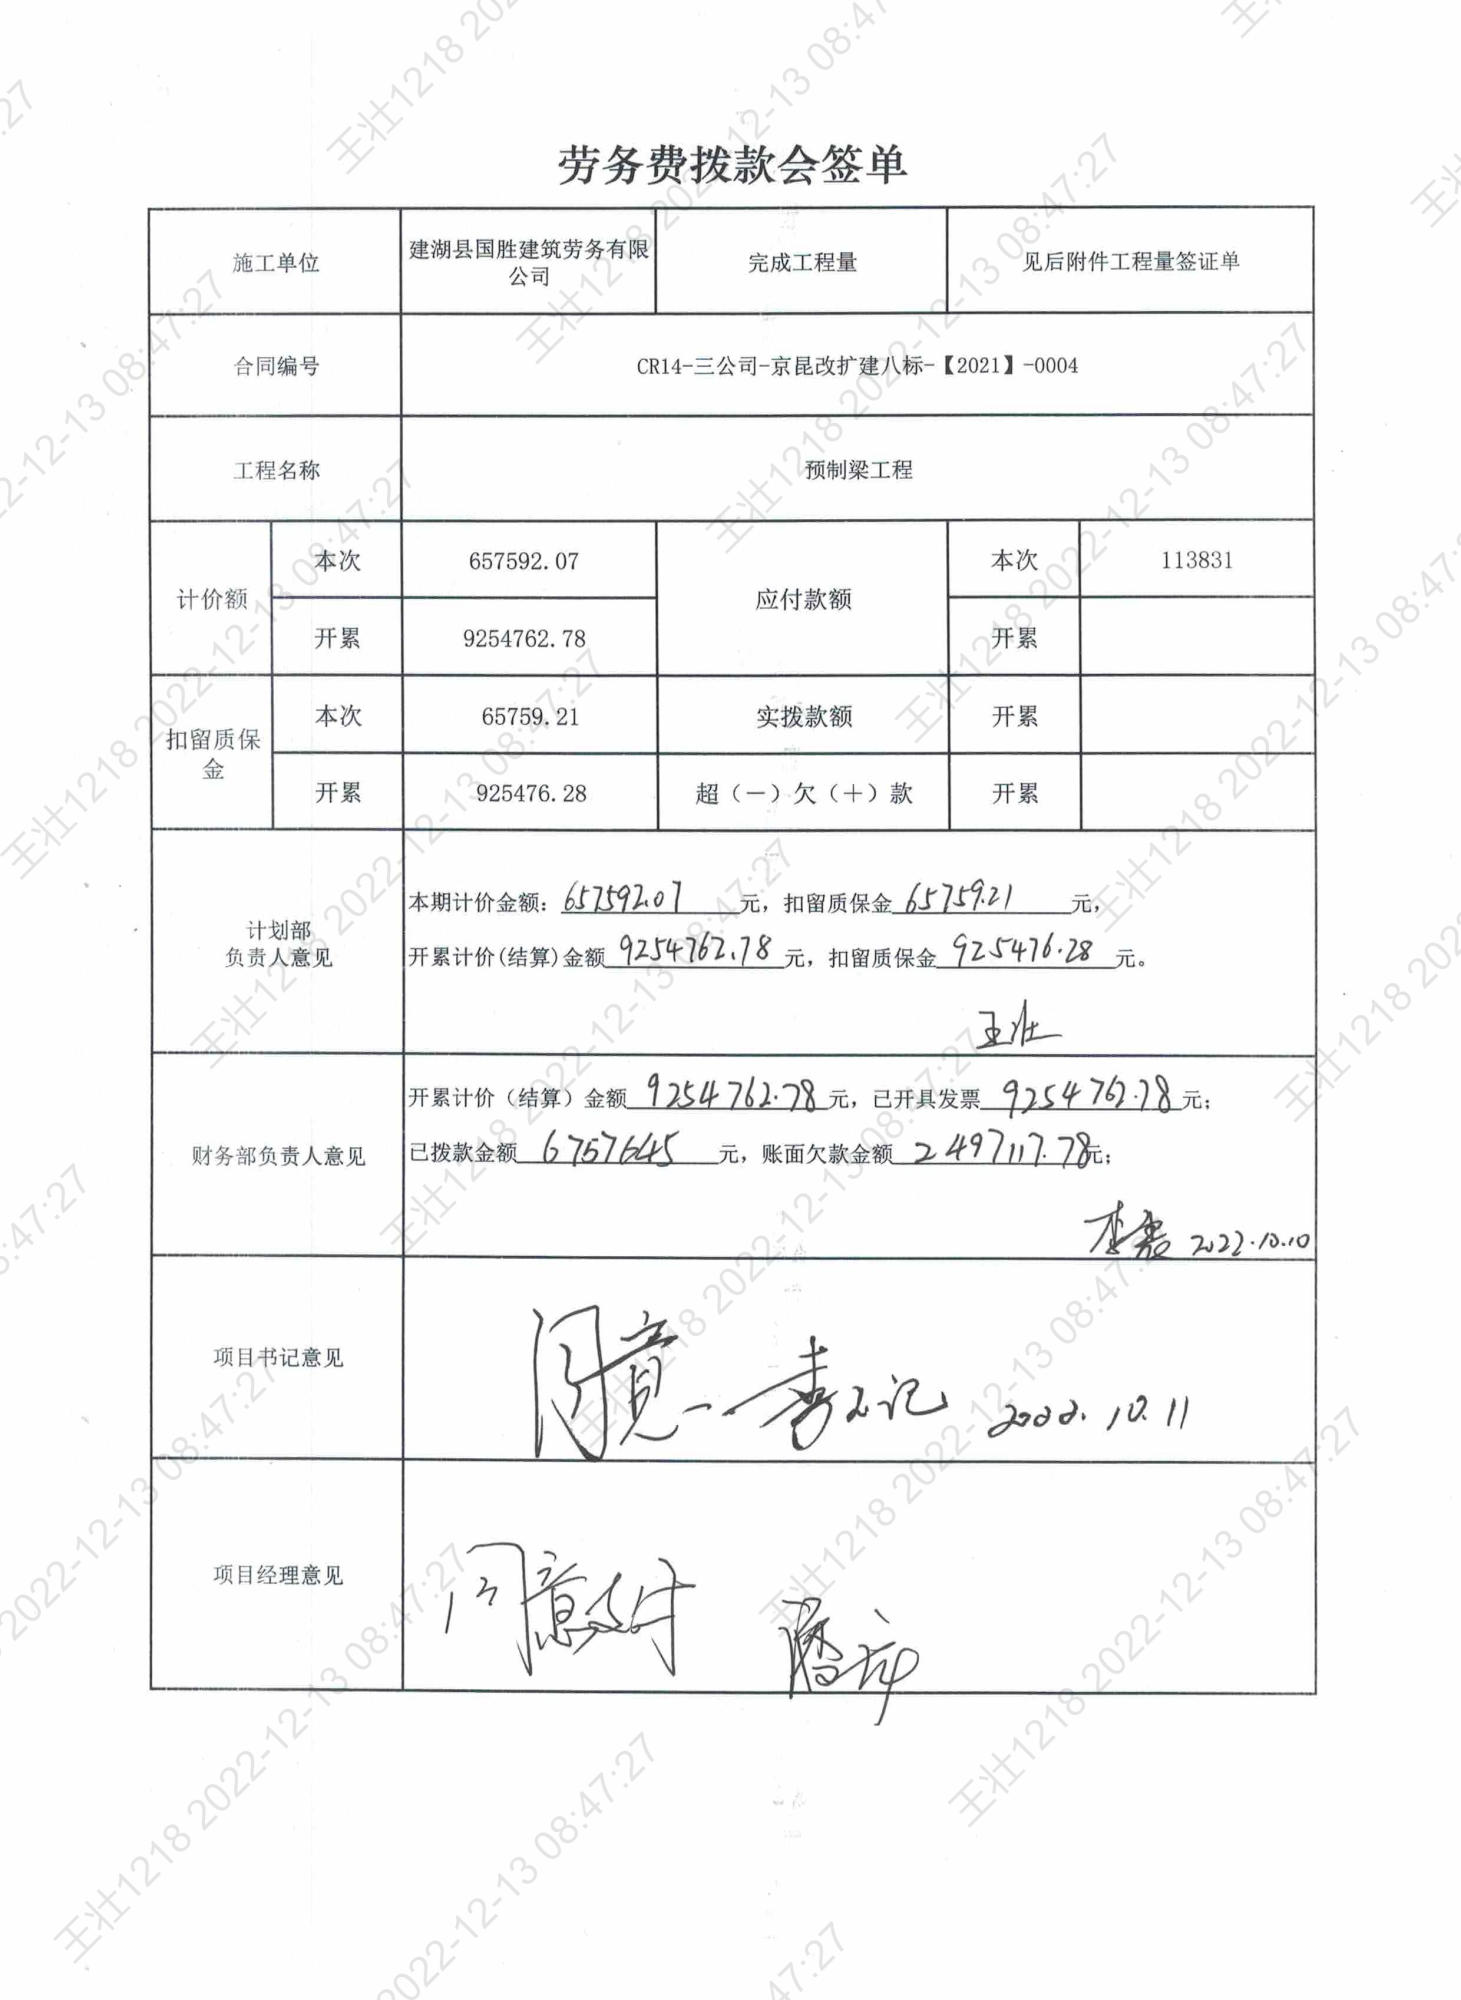 劳务费拨款会签单
施工单位 建湖县国胜建筑劳务有限公司 完成工程量 见后附件工程量签证单
合同编号 CR14-三公司-京昆改扩建八标-【2021】-0004
工程名称 预制梁工程
计价额 本次 657592.07 应付款额 本次 113831
开累 9254762.78 开累
扣留质保金 本次 65759.21 实拨款额 开累
开累 925476.28 超（－）欠（＋）款 开累
计划部
负责人意见
本期计价金额：657592.07元，扣留质保金65759.21元，
开累计价(结算)金额9254762.78元，扣留质保金925476.28元。
王壮
财务部负责人意见
开累计价（结算）金额9254762.78元，已开具发票9254762.78元；
已拨款金额6757645元，账面欠款金额2497117.78元；
李 2022.10.10
项目书记意见
同意 2022.10.11
项目经理意见
同意支付
王壮1218 2022-12-13 08:47:27